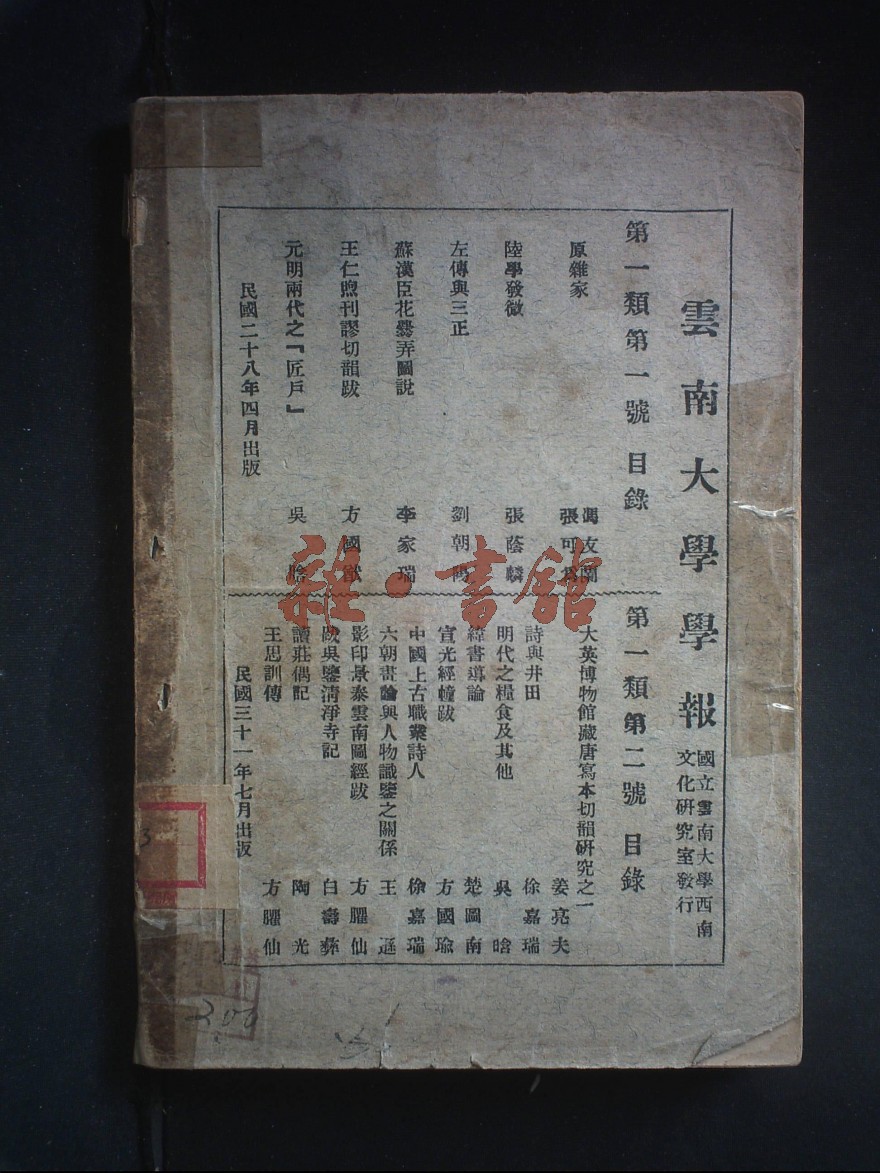 雲南大學學報
國立雲南大學西南
文化研究室發行
第一類第一號 目錄
原雜家 馮友蘭
張可為
陸學發微 張蔭麟
左傳與三正 劉朝陽
蘇漢臣花爨弄圖說 李家瑞
王仁煦刊謬切韻跋 方國瑜
元明兩代之「匠戶」 吳晗
民國二十八年四月出版
第一類第二號 目錄
大英博物館藏唐寫本切韻研究之一 姜亮夫
詩與井田 徐嘉瑞
明代之糧食及其他 吳晗
緯書導論 楚圖南
宣光經幢跋 方國瑜
中國上古職業詩人 徐嘉瑞
六朝書論與人物識鑒之關係 王遜
影印景泰雲南圖經跋 方臞仙
跋吳鑒清淨寺記 白壽彝
讀莊偶記 陶光
王思訓傳 方臞仙
民國三十一年七月出版
雜·書館
3
200